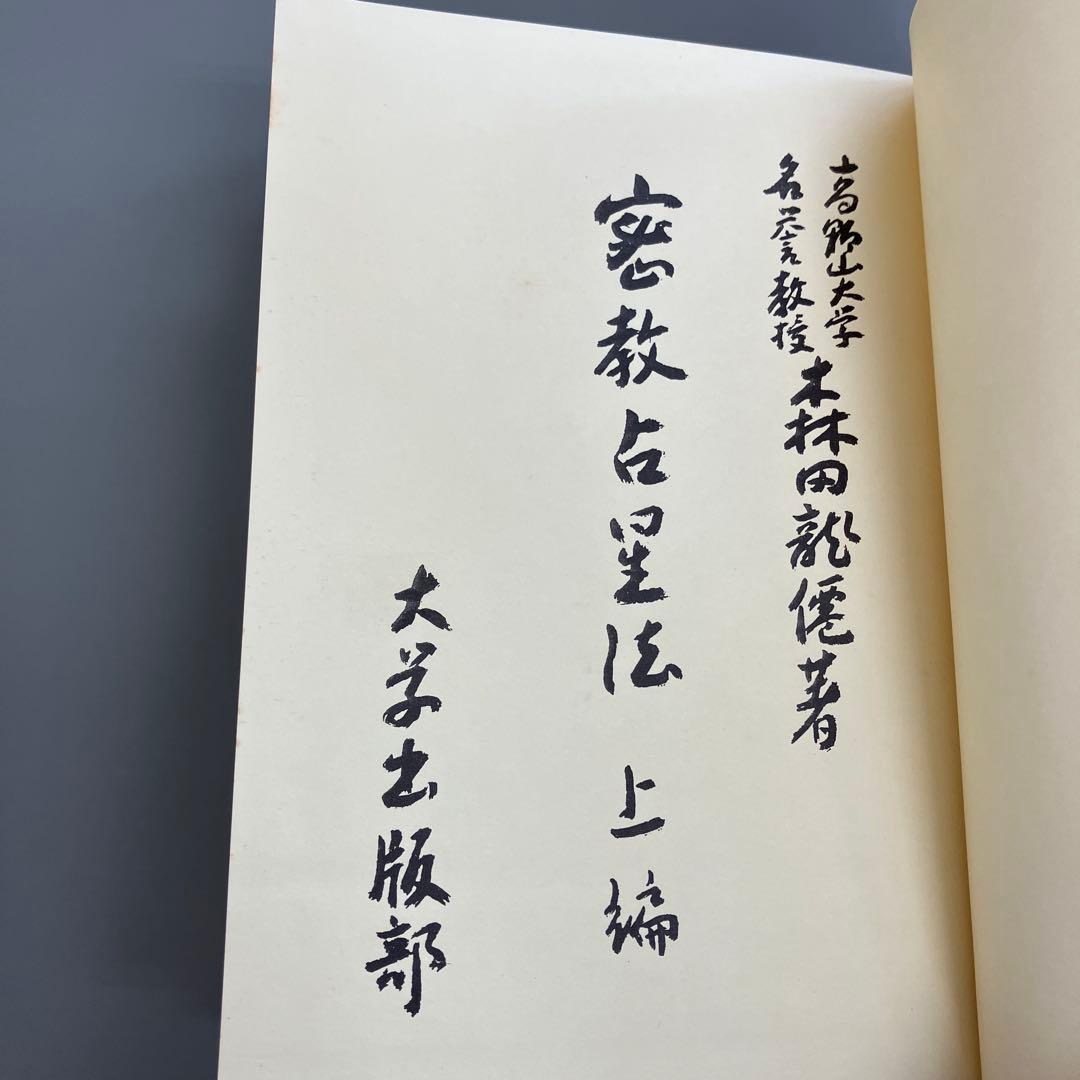 高野山大学
名誉教授
森田龍僊著
密教占星法 上編
大学出版部